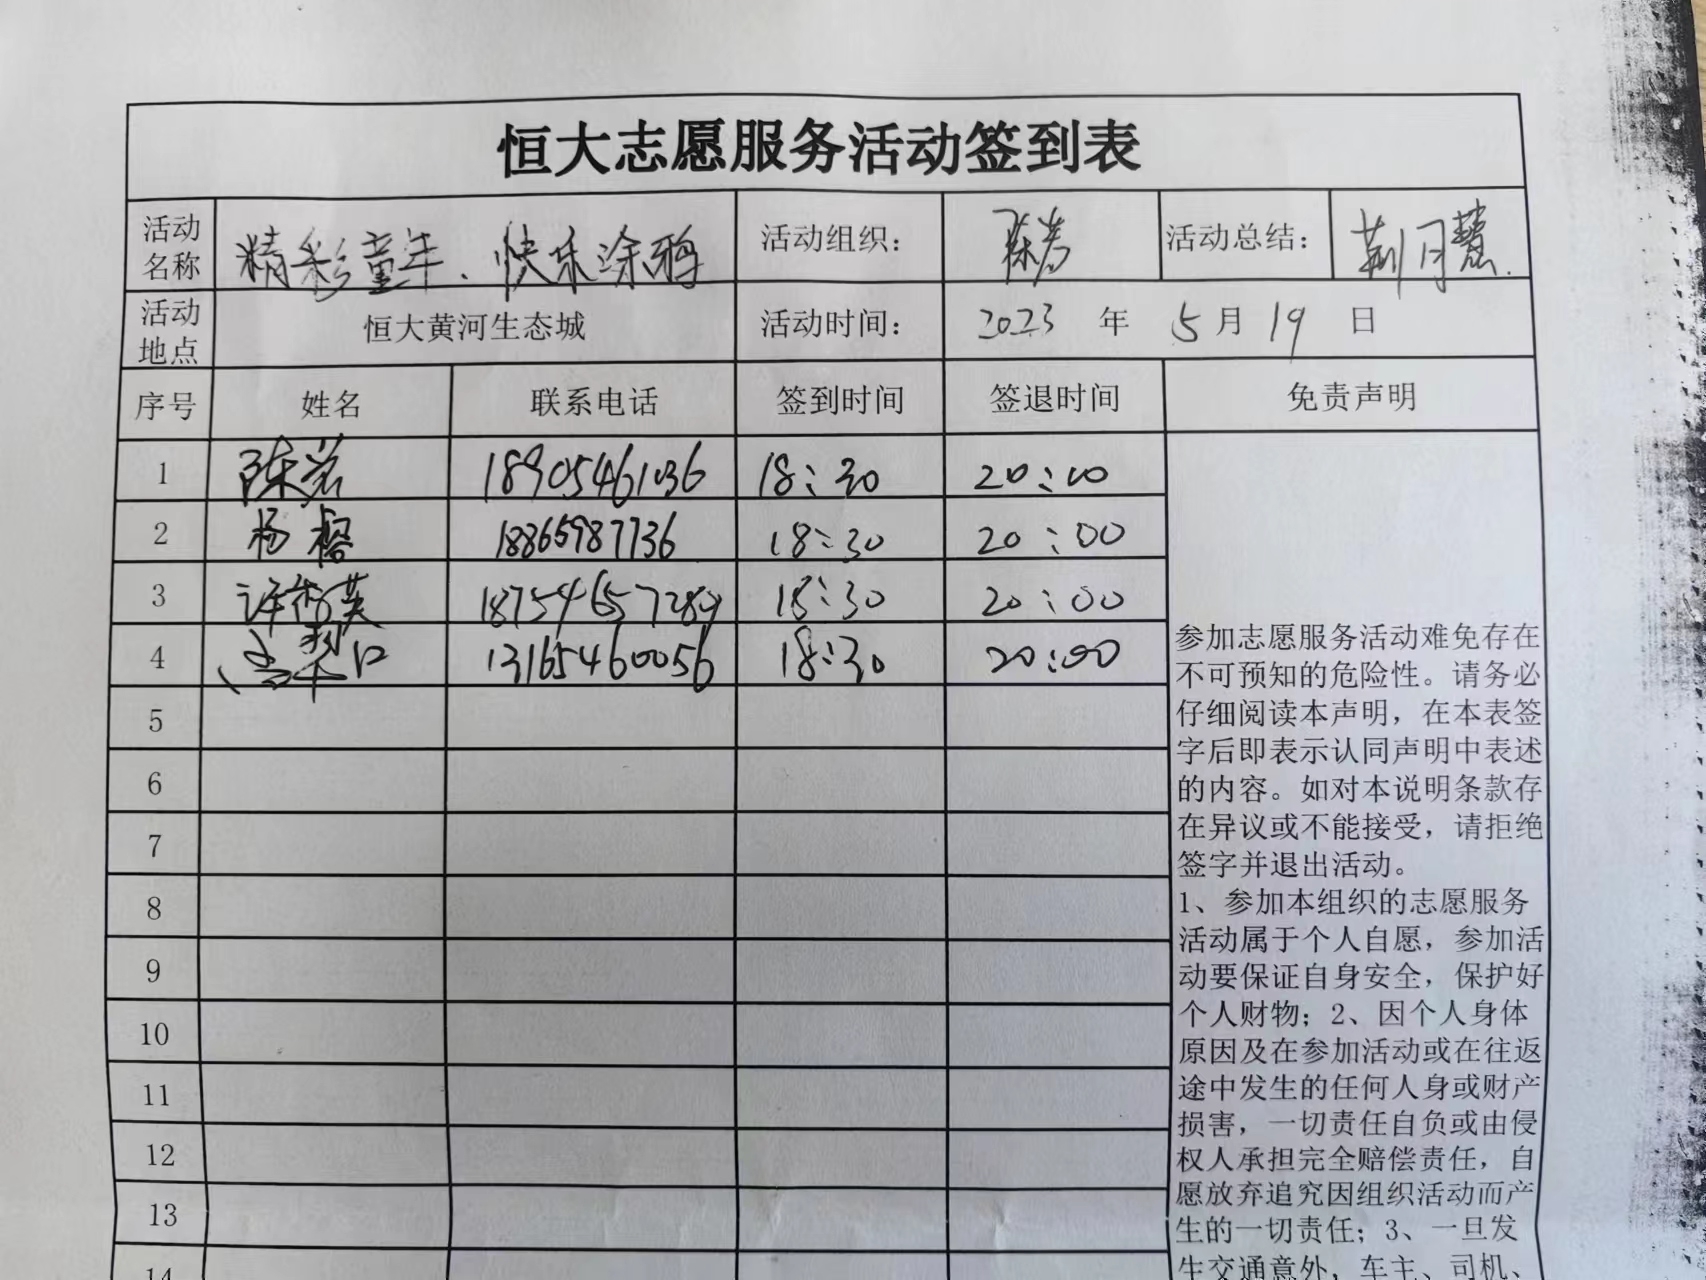 恒大志愿服务活动签到表
活动名称 精彩童年、快乐涂鸦 活动组织： 活动总结： 荆月慧
活动地点 恒大黄河生态城 活动时间： 2023 年 5 月 19 日
序号 姓名 联系电话 签到时间 签退时间 免责声明
1 18905461036 18:30 20:00
2 杨榕 18865987736 18:30 20:00
3 18:30 20:00
4 13165460056 18:30 20:00
5
6
7
8
9
10
11
12
13
14
参加志愿服务活动难免存在
不可预知的危险性。请务必
仔细阅读本声明，在本表签
字后即表示认同声明中表述
的内容。如对本说明条款存
在异议或不能接受，请拒绝
签字并退出活动。
1、参加本组织的志愿服务
活动属于个人自愿，参加活
动要保证自身安全，保护好
个人财物；2、因个人身体
原因及在参加活动或在往返
途中发生的任何人身或财产
损害，一切责任自负或由侵
权人承担完全赔偿责任，自
愿放弃追究因组织活动而产
生的一切责任；3、一旦发
生交通意外，车主、司机、